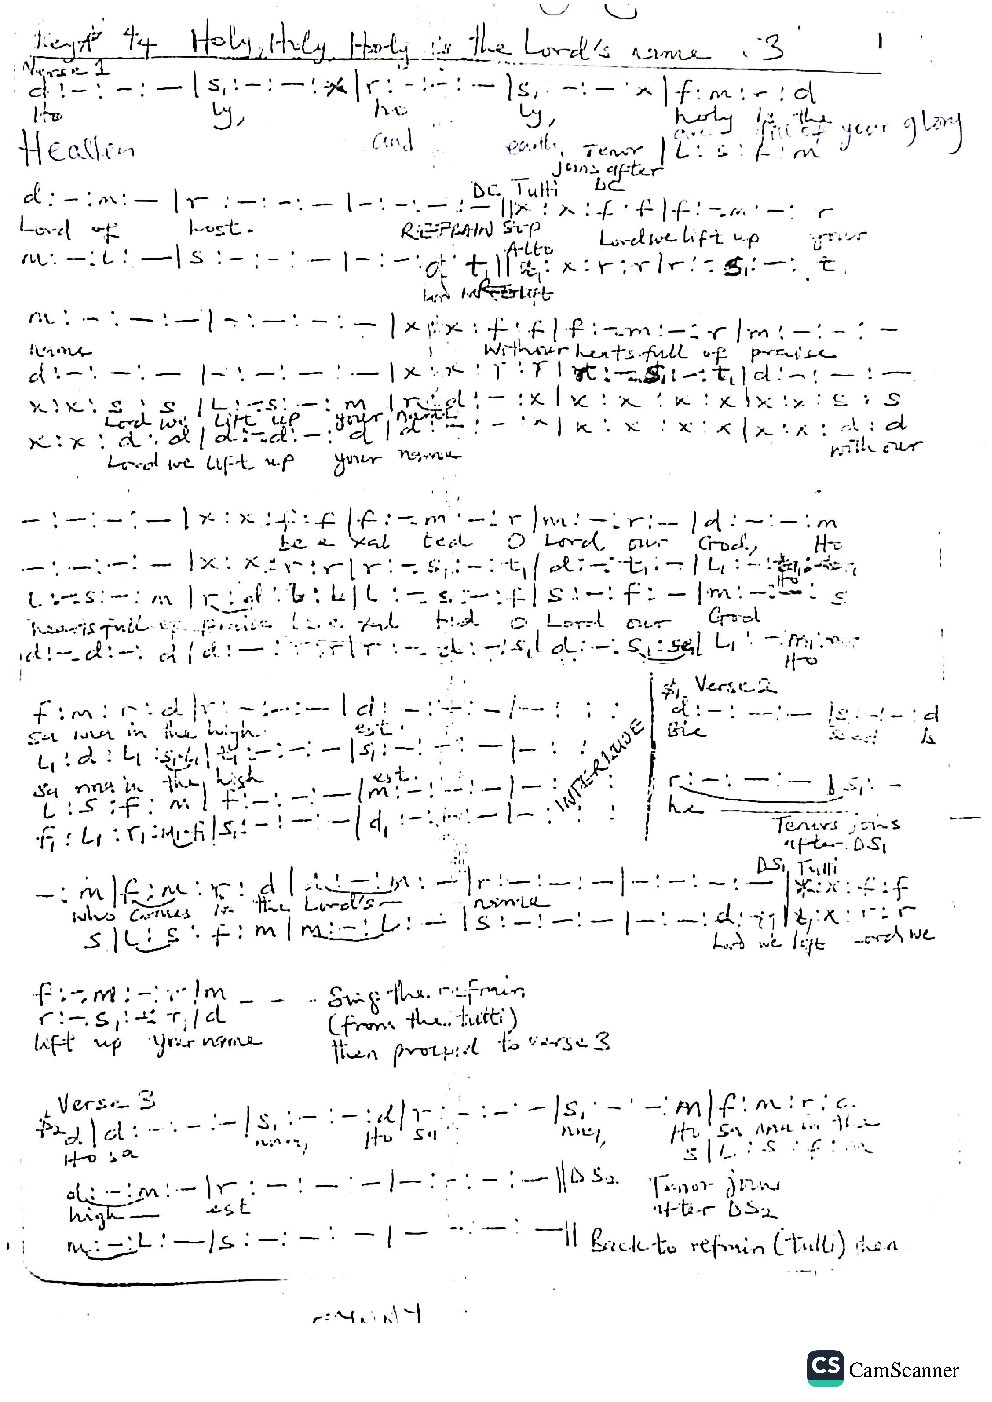 Key A 44 Holy, Holy Holy is the Lord's name . 3 1
Verse 1
d : - : - : - | s, : - : - : x | r : - : - : - | s, : - : - : x | f : m : r : d
Ho ly, ho ly, holy is the
Heaven and earth, are full of your glory
Tenor joins after DC | L : s : f : m
d : - : m : - | r : - : - : - | - : - : - : - || x : x : f : f | f : - . m : - : r
DC Tutti
Lord of host. REFRAIN Sop Lord we lift up your
Alto
m : - : L : - | s : - : - : - | - : - : d t, || t, : x : r : r | r : - . s, : - : t,
m : - : - : - | - : - : - : - | x : x : f : f | f : - . m : - : r | m : - : - : -
name with our hearts full of praise
d : - : - : - | - : - : - : - | x : x : r : r | r : - . s, : - : t, | d : - : - : -
x : x : s : s | L : - . s : - : m | r : d : - : x | x : x : x : x | x : x : s : s
Lord we lift up your name
x : x : d : d | d : - . d : - : d | d : - : - : x | x : x : x : x | x : x : d : d
Lord we lift up your name with our
- : - : - : - | x : x : f : f | f : - . m : - : r | m : - : r : - | d : - : - : m
be e xal ted O Lord our God, Ho
- : - : - : - | x : x : r : r | r : - . s, : - : t, | d : - : t, : - | L, : - :
Ho
L : - . s : - : m | r : d : L : L | L : - . s : - : f | s : - : f : - | m : - : - : s
hearts full of praise be e xal ted O Lord our God
d : - . d : - : d | d : - : r : r | r : - . d : - : s, | d : - : s, : | L, : - : m, :
Ho
f : m : r : d | r : - : - : - | d : - : - : - | - : - : :
sa nna in the high est.
L, : d : L, : s, L, | t, : - : - : - | s, : - : - : - | - : - : :
sa nna in the high est.
L : s : f : m | f : - : - : - | m : - : - : - | - : - : :
f, : L, : r, : m, f, | s, : - : - : - | d, : - : - : - | - : - : :
INTERLUDE
S, Verse 2
d : - : - : - | s : - : - : d
Ble ssed is
r : - : - : - | s, : -
he
Tenors joins
after DS,
DS, Tutti
- : m | f : m : r : d | : - : m : - | r : - : - : - | - : - : - : - || x : x : f : f
who comes in the Lord's name
s | L : s : f : m | m : - : L : - | s : - : - : - | - : - : - : d : t, || t, : x : r : r
Lord we lift Lord we
f : - . m : - : r | m - - - Sing the refrain
r : - . s, : - : t, | d (from the tutti)
lift up your name then proceed to verse 3
Verse 3
S2 d | d : - : - : - | s, : - : - : d | r : - : - : - | s, : - : - : m | f : m : r : d
Ho sa nna, Ho sa nna, Ho sa nna in the
s | L : s : f : m
d : - : m : - | r : - : - : - | - : - : - : - || DS2 Tenor joins
high est after DS2
m : - : L : - | s : - : - : - | - : - : - : - || Back to refrain (tutti) then
CS CamScanner